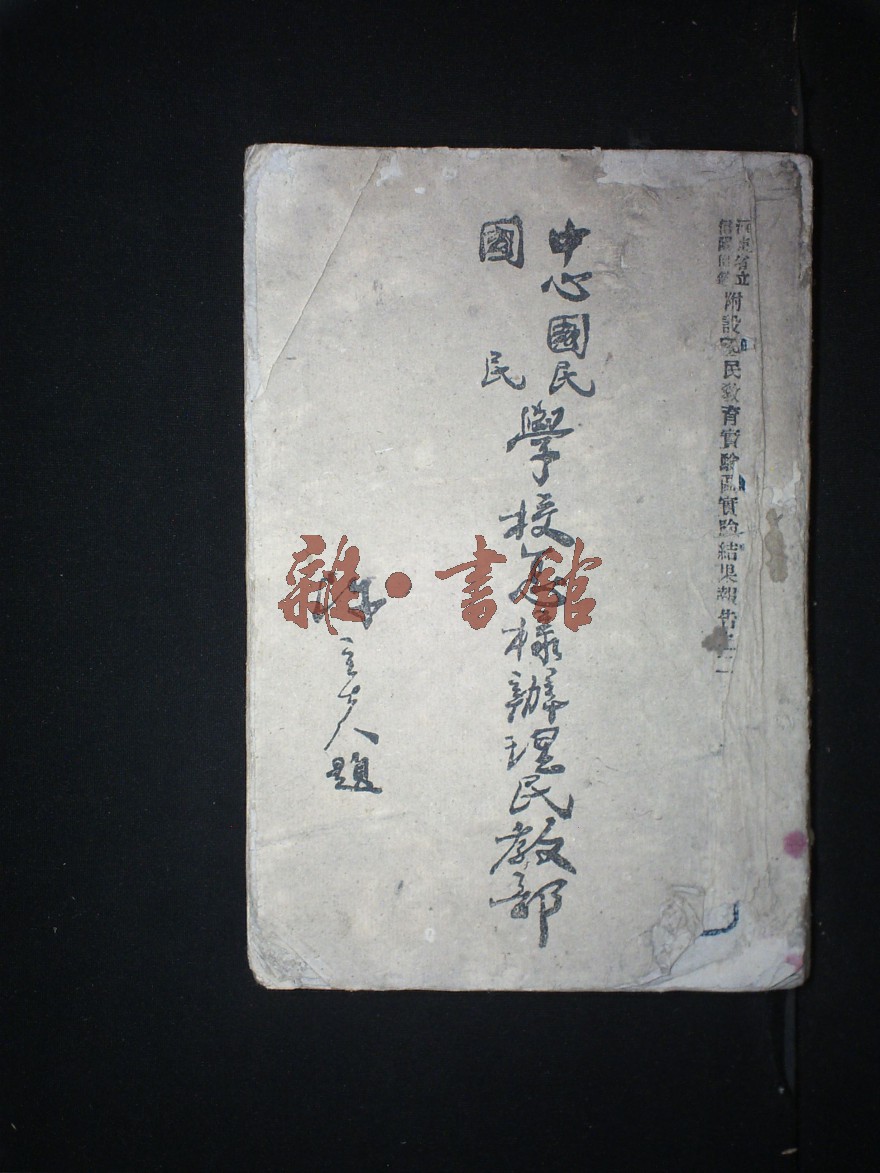 河南省立
信陽師範
附設國民教育實驗區實驗結果報告之二
中心國民
國民
學校怎樣辦理民教部
題
雜·書館